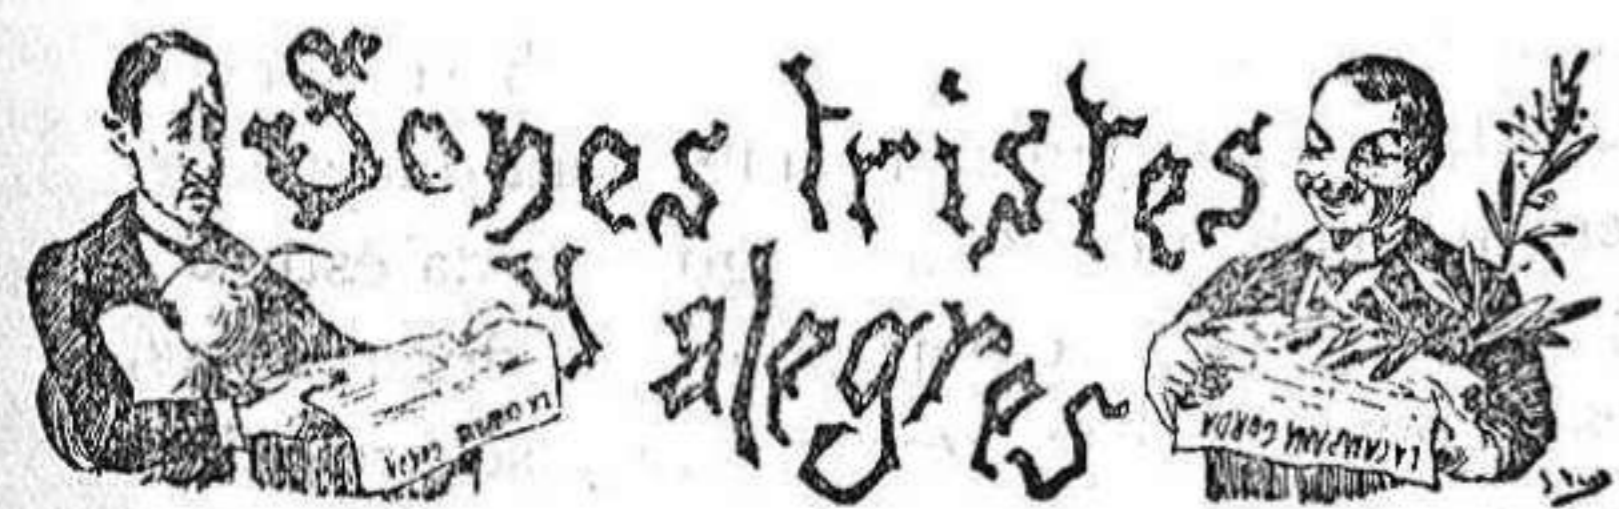 Sones tristes
y alegres
LA CAMPANA GORDA
GORDA